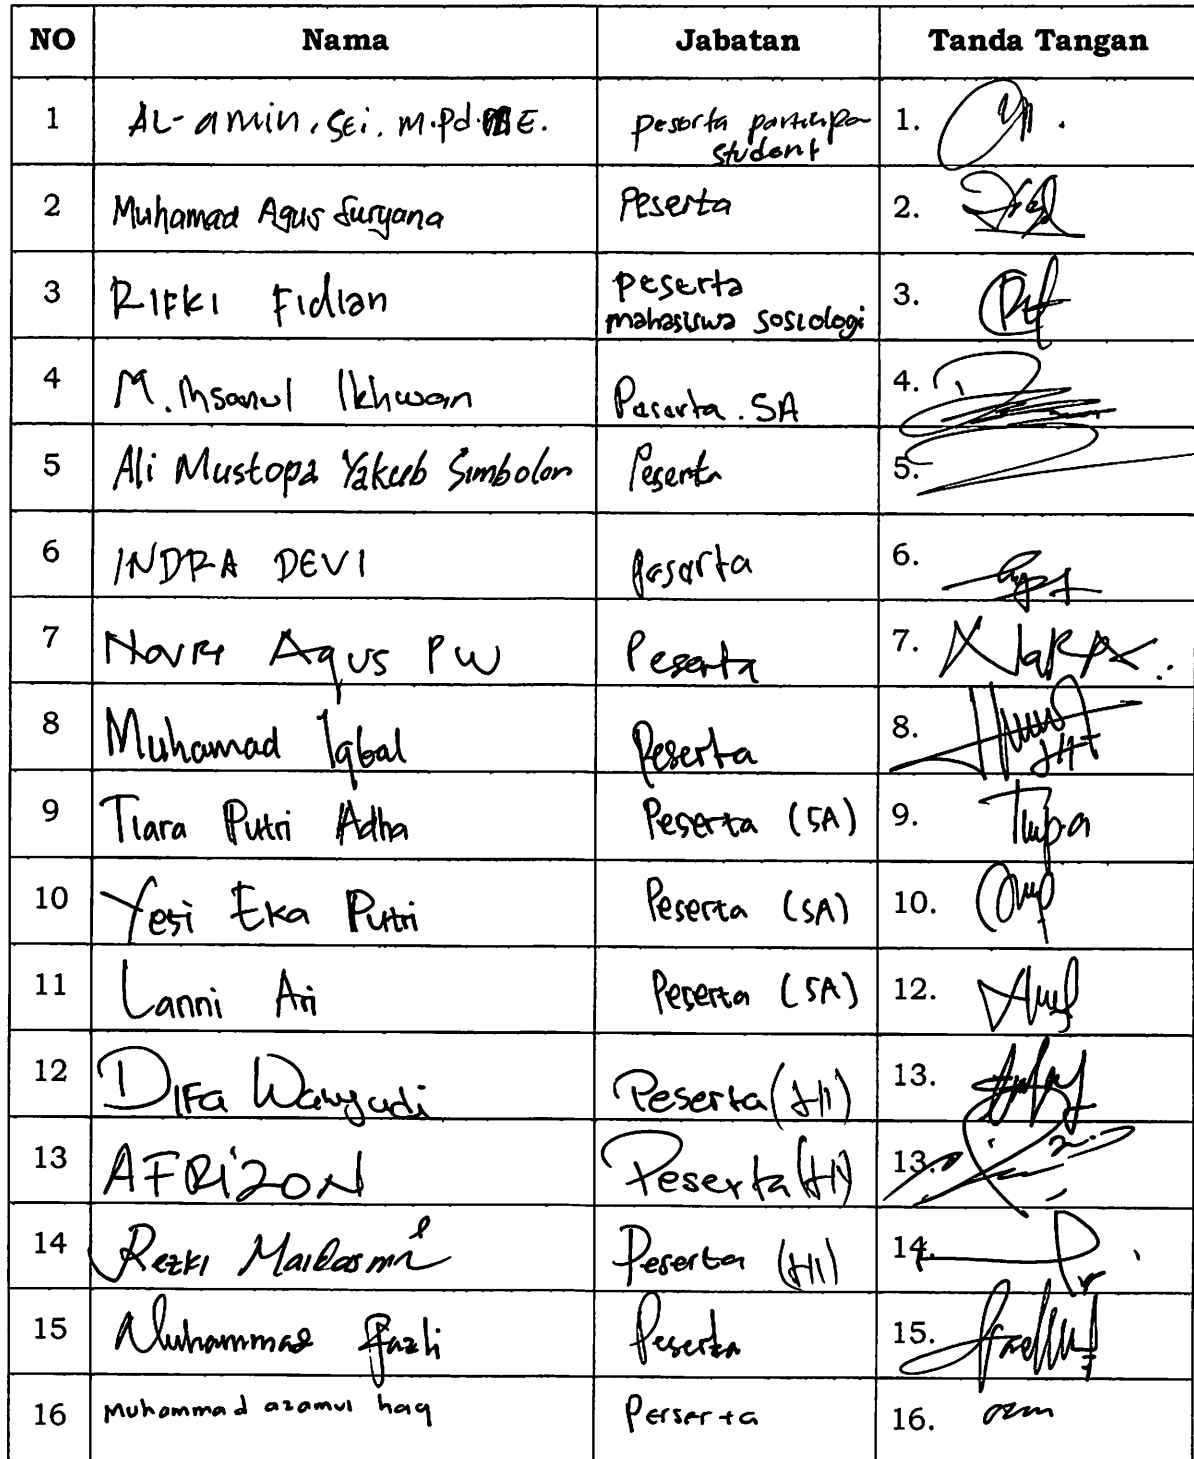 NO Nama Jabatan Tanda Tangan
1 AL-amin. SEi. M.Pd. ME. peserta partisipa 1.
student
2 Muhamad Agus Suryana Peserta 2.
3 RIFKI Fidian peserta 3.
mahasiswa sosiologi
4 M. Ihsanul Ikhwan Peserta. SA 4.
5 Ali Mustopa Yakub Simbolon Peserta 5.
6 INDRA DEVI peserta 6.
7 Agus PW Peserta 7.
8 Muhamad Iqbal Peserta 8.
9 Tiara Putri Adha Peserta (SA) 9.
10 Yesi Eka Putri Peserta (SA) 10.
11 Lanni Ari Peserta (SA) 12.
12 DIFa Wahyudi Peserta (HI) 13.
13 AFRiZON Peserta (HI) 13.
14 Rezki Peserta (HI) 14.
15 Muhammad Fazli Peserta 15.
16 Muhammad azamul haq Perserta 16.